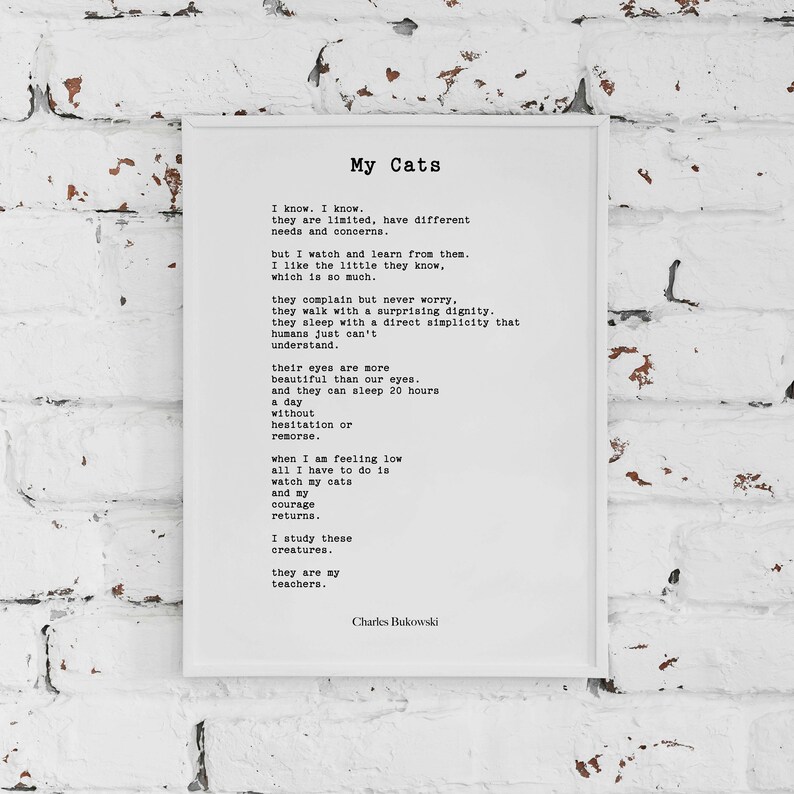 My Cats
I know. I know.
they are limited, have different
needs and concerns.
but I watch and learn from them.
I like the little they know,
which is so much.
they complain but never worry,
they walk with a surprising dignity.
they sleep with a direct simplicity that
humans just can't
understand.
their eyes are more
beautiful than our eyes.
and they can sleep 20 hours
a day
without
hesitation or
remorse.
when I am feeling low
all I have to do is
watch my cats
and my
courage
returns.
I study these
creatures.
they are my
teachers.
Charles Bukowski